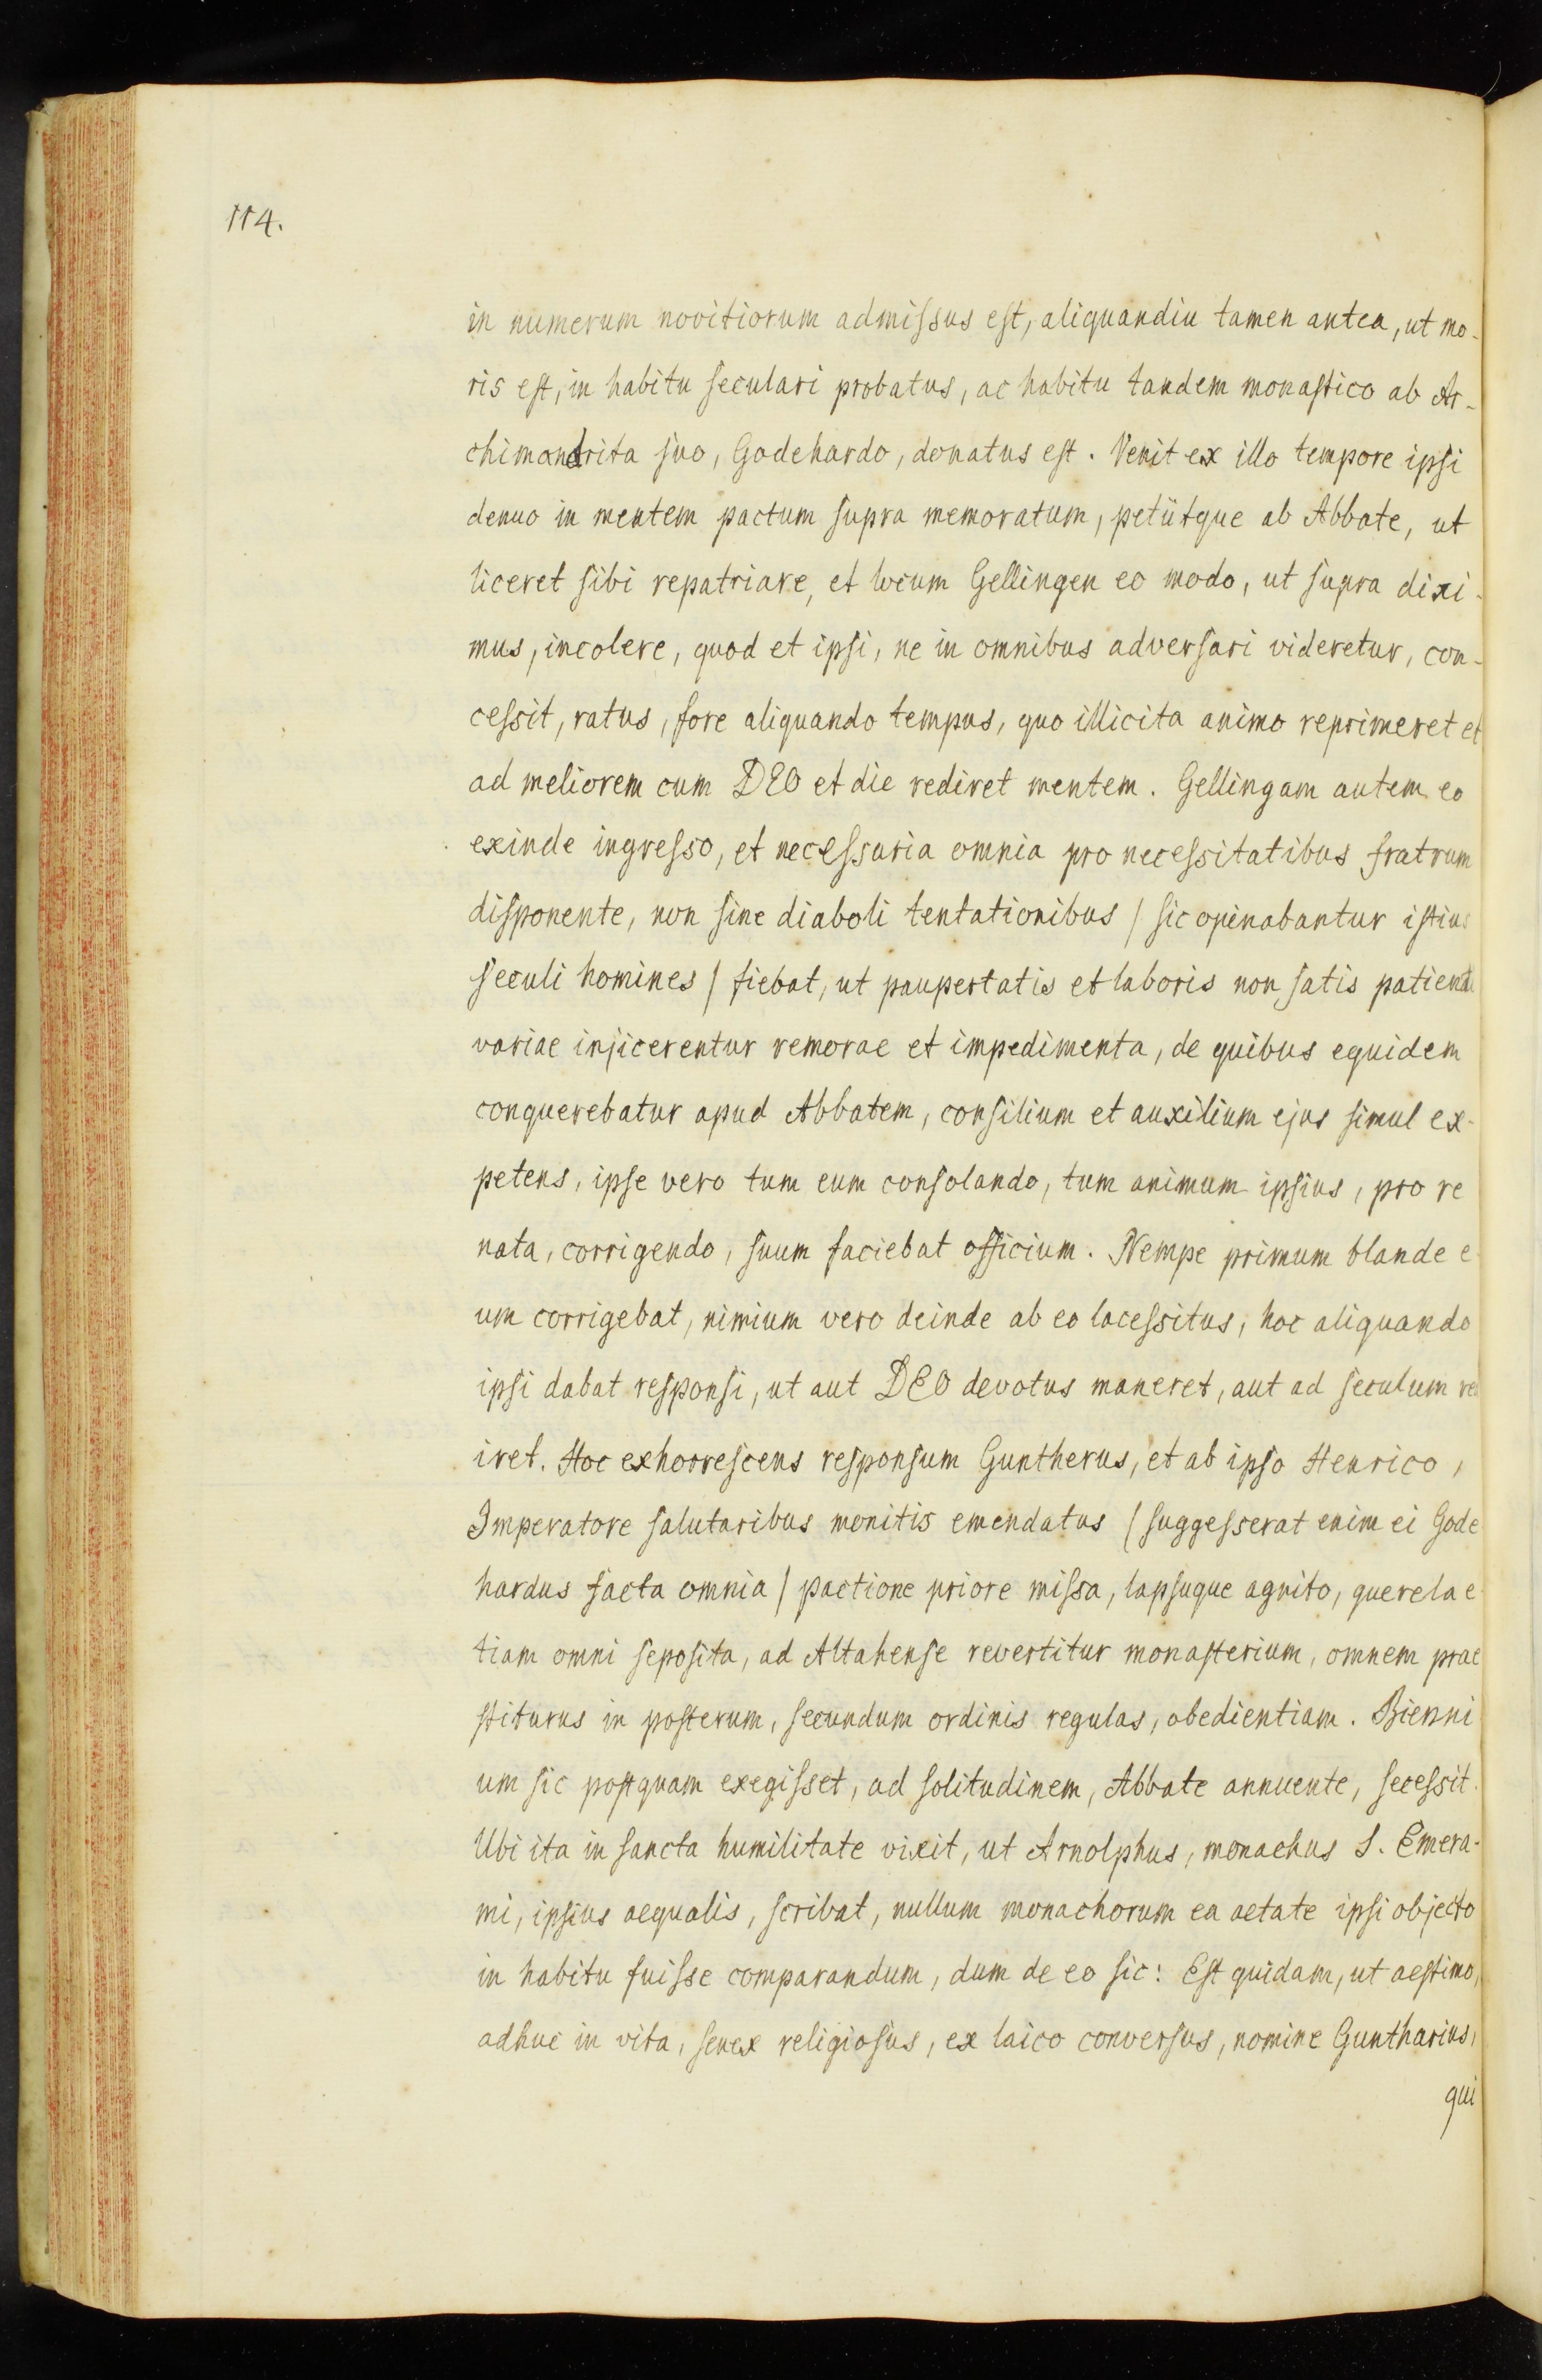 114.
in numerum novitiorum admissus est, aliquandiu tamen antea, ut mo-
ris est, in habitu seculari probatus, ac habitu tandem monastico ab Ar-
chimandrita suo, Godehardo, donatus est. Venit ex illo tempore ipsi
denuo in mentem pactum supra memoratum, petiitque ab Abbate, ut
liceret sibi repatriare, et locum Gellingen eo modo, ut supra dixi-
mus, incolere, quod et ipsi, ne in omnibus adversari videretur, con-
cessit, ratus, fore aliquando tempus, quo illicita animo reprimeret et
ad meliorem cum DEO et die rediret mentem. Gellingam autem eo
exinde ingresso, et necessaria omnia pro necessitatibus fratrum
disponente, non sine diaboli tentationibus / sic opinabantur istius
seculi homines / fiebat, ut paupertatis et laboris non satis patienti
variae injicerentur remorae et impedimenta, de quibus equidem
conquerebatur apud Abbatem, consilium et auxilium ejus simul ex-
petens, ipse vero tum eum consolando, tum animum ipsius, pro re
nata, corrigendo, suum faciebat officium. Nempe primum blande e
um corrigebat, nimium vero deinde ab eo lacessitus, hoc aliquando
ipsi dabat responsi, ut aut DEO devotus maneret, aut ad seculum red
iret. Hoc exhorrescens responsum Guntherus, et ab ipso Henrico,
Imperatore salutaribus monitis emendatus / suggesserat enim ei Gode
hardus facta omnia / pactione priore missa, lapsuque agnito, querela e
tiam omni seposita, ad Altahense revertitur monasterium, omnem prae
stiturus in posterum, secundum ordinis regulas, obedientiam. Bienni
um sic postquam exegisset, ad solitudinem, Abbate annuente, secessit.
Ubi ita in sancta humilitate vixit, ut Arnolphus, monachus S. Emera-
mi, ipsius aequalis, scribat, nullum monachorum ea aetate ipsi objecto
in habitu fuisse comparandum, dum de eo sic: Est quidam, ut aestimo,
adhuc in vita, senex religiosus, ex laico conversus, nomine Guntharius,
qui